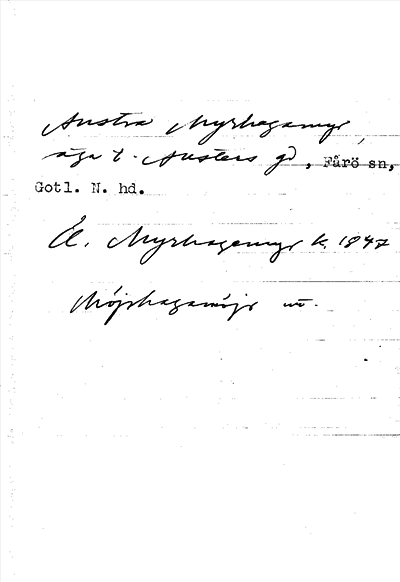 Austra Myrhagamyr,
äga t. Austers gd, Fårö sn,
Gotl. N. hd.
Myrhagamyr k. 1847
Möjrhagamöjr